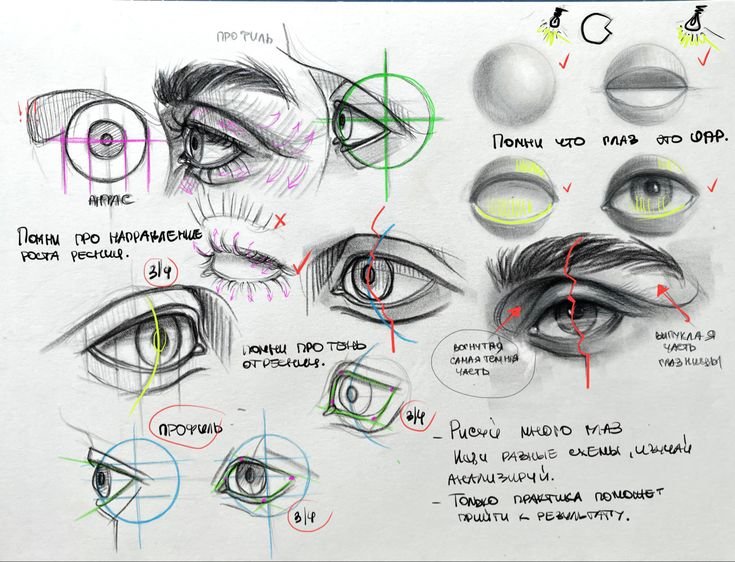 ПРОФИЛЬ
АНФАС
ПОМНИ ЧТО ГЛАЗ ЭТО ШАР.
ПОМНИ ПРО НАПРАВЛЕНИЕ
РОСТА РЕСНИЦ.
3/4
ПОМНИ ПРО ТЕНЬ
ОТ РЕСНИЦ.
ВОГНУТАЯ
САМАЯ ТЕМНАЯ
ЧАСТЬ
ВЫПУКЛАЯ
ЧАСТЬ
ГЛАЗНИЦЫ
3/4
ПРОФИЛЬ
3/4
- РИСУЙ МНОГО ГЛАЗ
ИЩИ РАЗНЫЕ СХЕМЫ, ИЗУЧАЙ
АНАЛИЗИРУЙ.
- ТОЛЬКО ПРАКТИКА ПОМОЖЕТ
ПРИЙТИ К РЕЗУЛЬТАТУ.